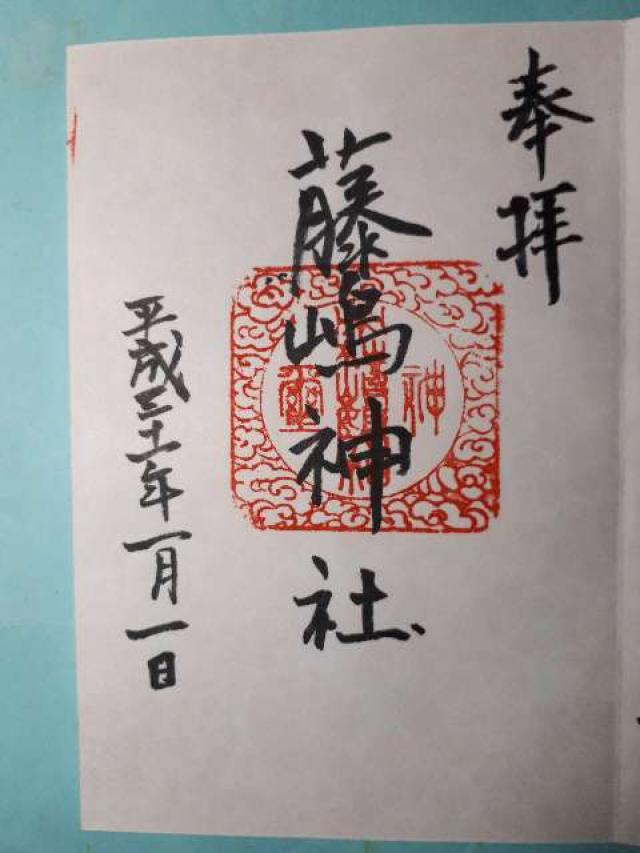 奉拝
藤嶋神社
平成三十一年一月一日